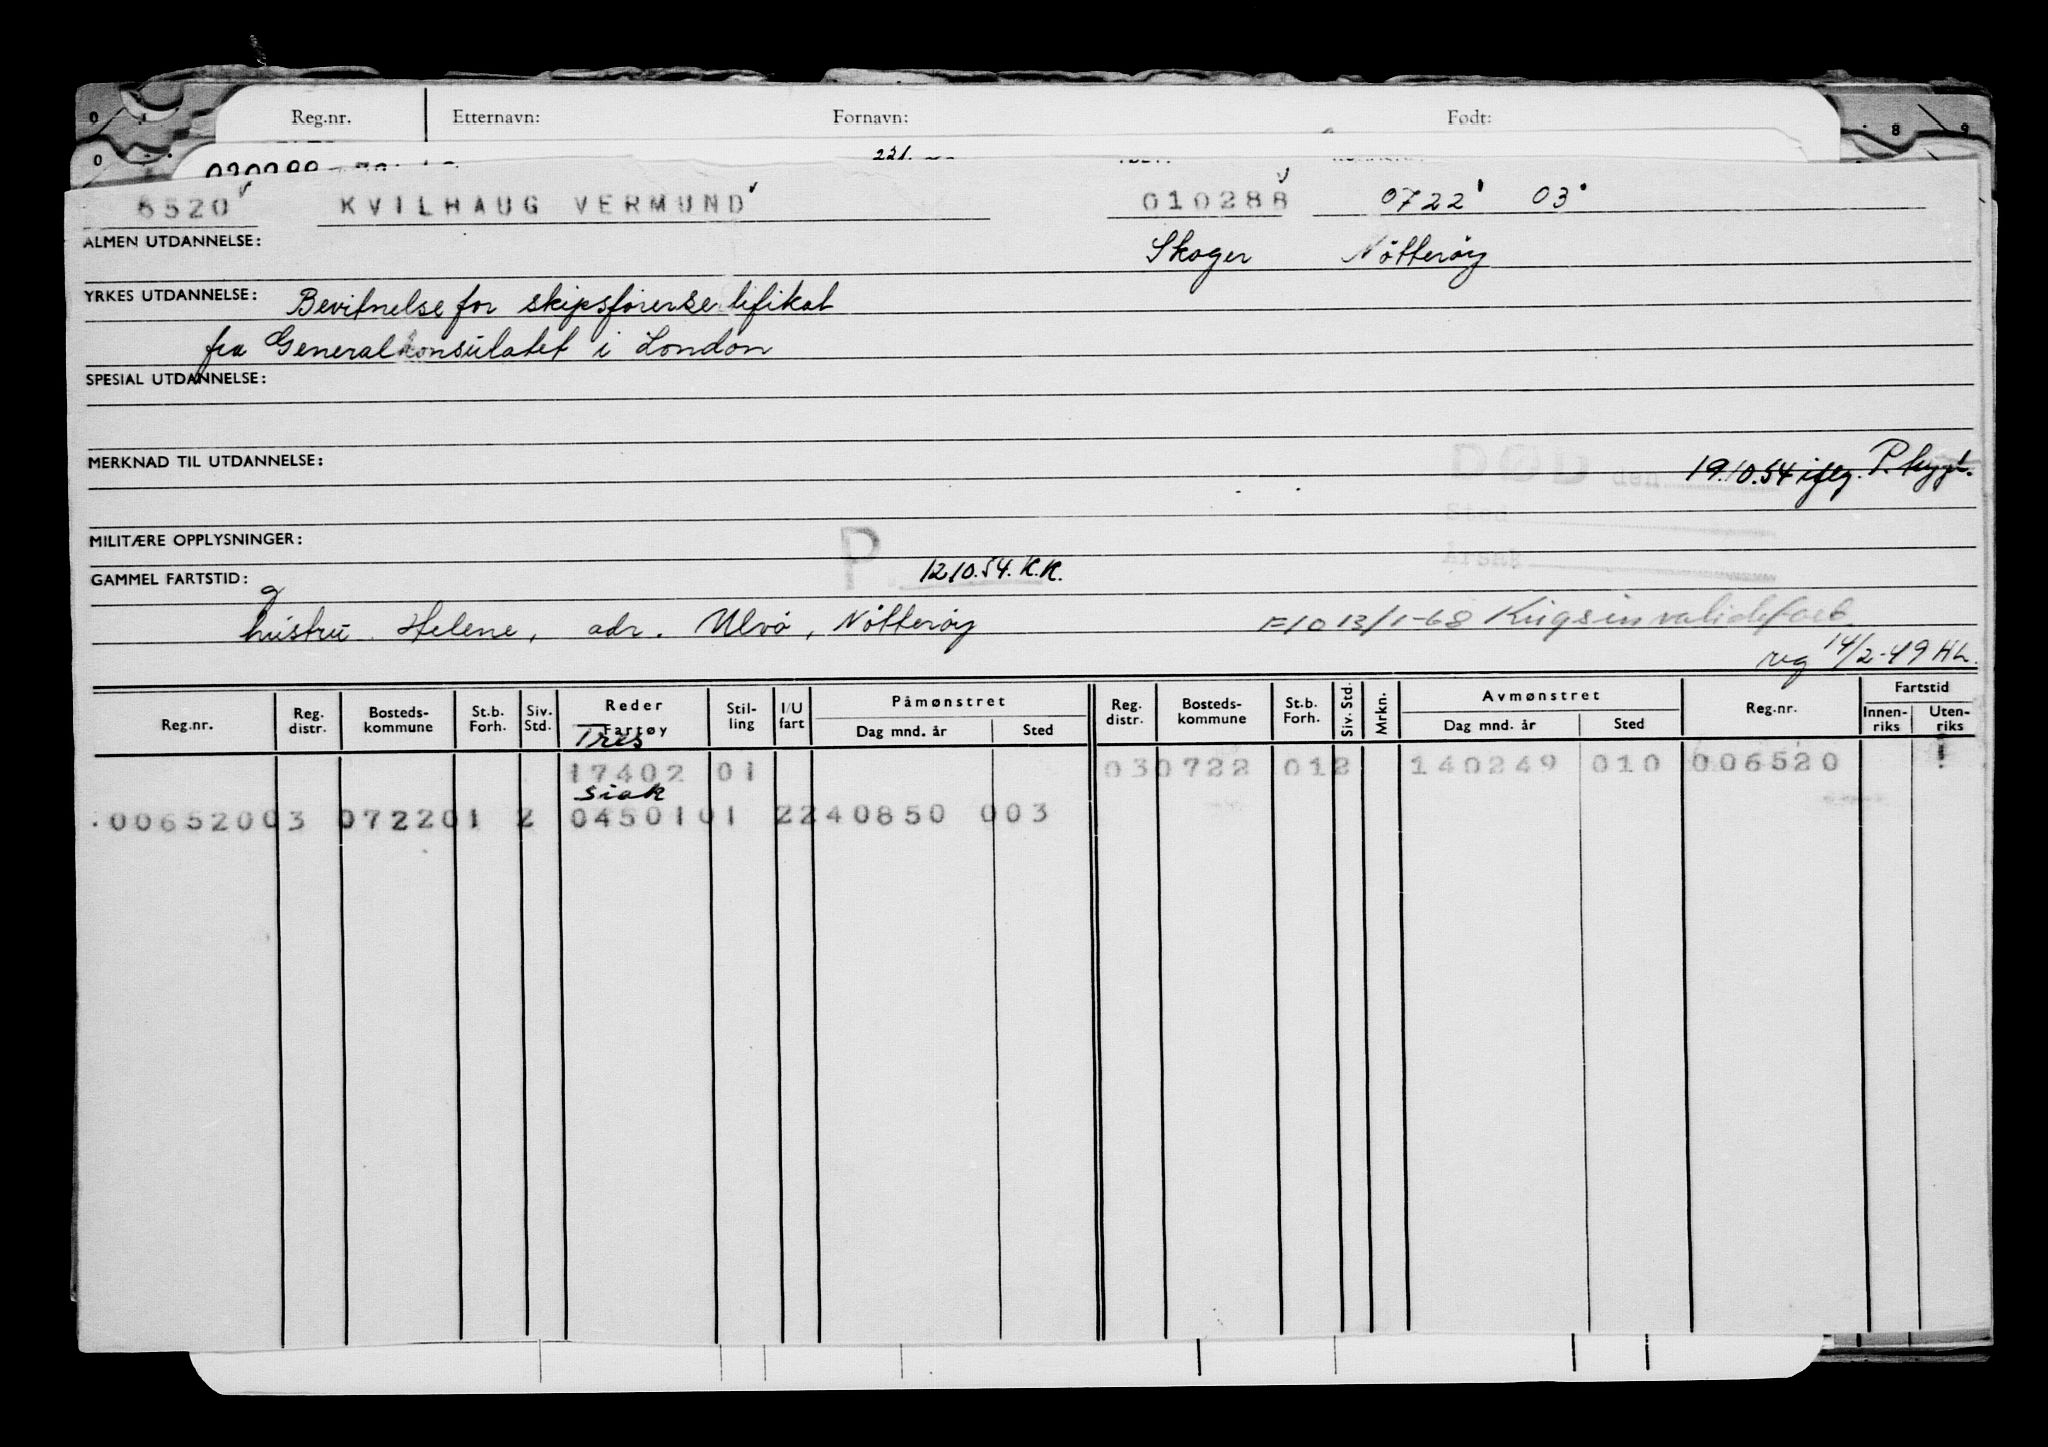 Reg.nr. Etternavn: Fornavn: Født:
6520 KVILHAUG VERMUND 010288 0722 03
ALMEN UTDANNELSE: Skoger Nötterøy
YRKES UTDANNELSE: Bevitnelse for skipsförersertifikat
fra Generalkonsulatet i London
SPESIAL UTDANNELSE:
MERKNAD TIL UTDANNELSE: DØD den 19.10.54 iflg. P. trygd.
Sted
MILITÆRE OPPLYSNINGER: P Årsak
GAMMEL FARTSTID: 12.10.54. K.K.
g
hustru Helene, adr. Ulvö, Nötteröy 13/1-68 Krigsinvalidefart
reg 14/2-49 HL.
Reg.nr. Reg. distr. Bosteds-kommune St.b. Forh. Siv. Std. Reder Fartøy Stil-ling I/U fart Påmønstret Dag mnd. år Sted Reg. distr. Bosteds-kommune St.b. Forh. Siv. Std. Mrkn. Avmønstret Dag mnd. år Sted Reg.nr. Fartstid Innen-riks Uten-riks
Tres
17402 01 03 0722 01 2 140249 010 006520
Siak
006520 03 0722 01 2 04501 01 2 240850 003